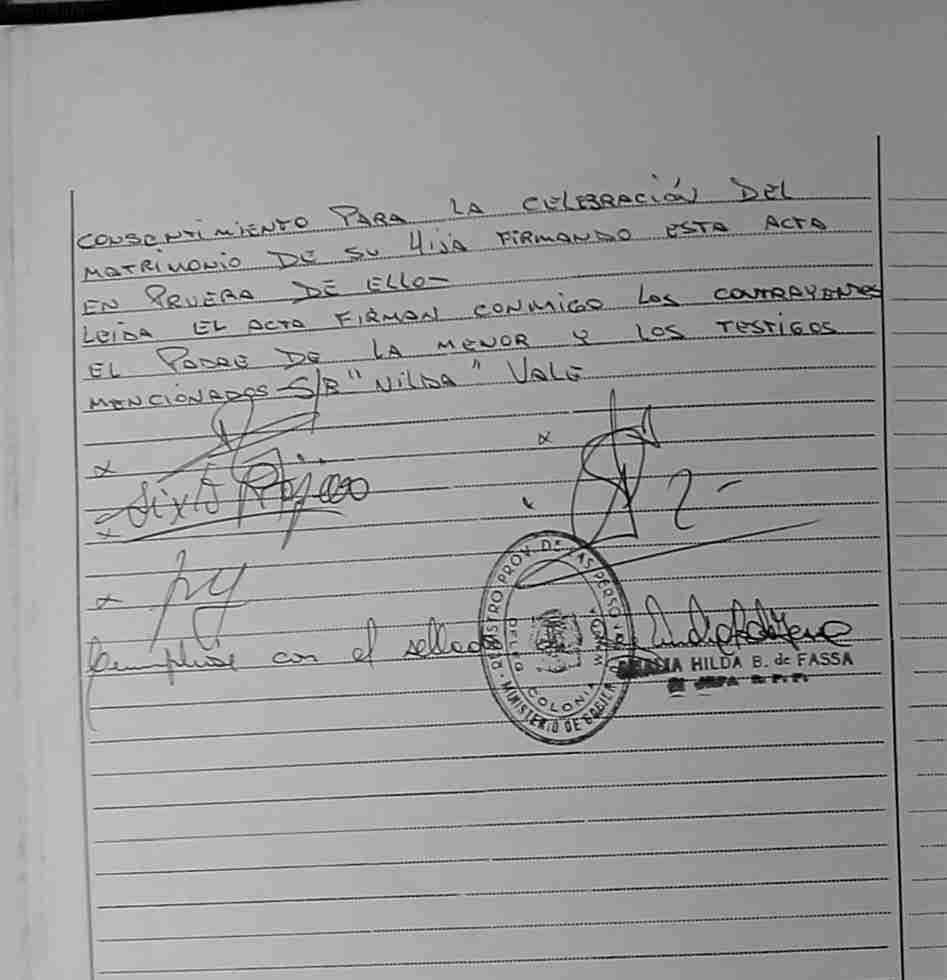 CONSENTIMIENTO PARA LA CELEBRACIÓN DEL
MATRIMONIO DE SU HIJA FIRMANDO ESTA ACTA
EN PRUEBA DE ELLO-
LEIDA EL ACTA FIRMAN CONMIGO LOS CONTRAYENTES
EL PADRE DE LA MENOR Y LOS TESTIGOS
MENCIONADOS-S/R "NILDA" VALE
x
x
Sixto
x
x
Cumplióse con el sellado
REGISTRO PROV. DE LAS PERSONAS
MINISTERIO DE GOBIER
COLONIA
HILDA B. de FASSA